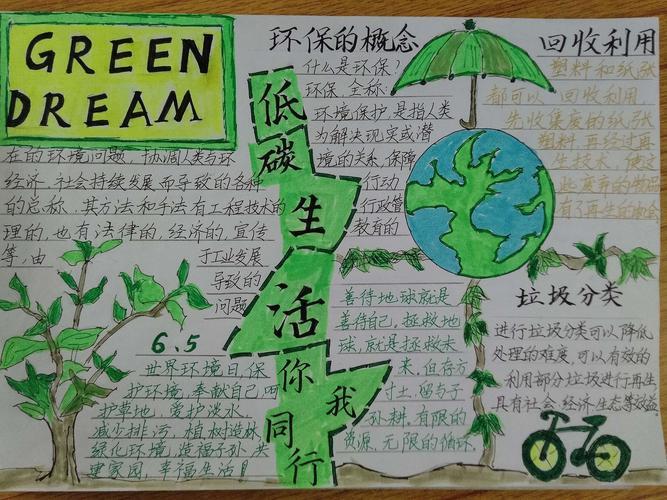 GREEN
DREAM
环保的概念
什么是环保?
环保全称:
环境保护,是指人类
为解决现实或潜
在的环境问题,协调人类与环
境的关系,保障
经济、社会持续发展而导致的各种
行动
的总称,其方法和手法有工程技术的
行政管
理的,也有法律的,经济的,宣传
教育的
等,由
于工业发展
导致的
问题
低碳生活你我同行
回收利用
塑料和纸张
都可以回收利用,
先收集废的纸张
塑料,再经过再
生技术,使这
些废弃的物品
有了再生的机会
垃圾分类
进行垃圾分类可以降低
处理的难度,可以有效的
利用部分垃圾进行再生
具有社会、经济、生态等效益
善待地球就是
善待自己,拯救地
球,就是拯救未
来,但存方
寸土,留与子
孙耕。有限的
资源,无限的循环。
6.5
世界环境日,保
护环境,奉献自己,呵
护草地,爱护淡水,
减少排污,植树造林
绿化环境,造福子孙,共
建家园,幸福生活!